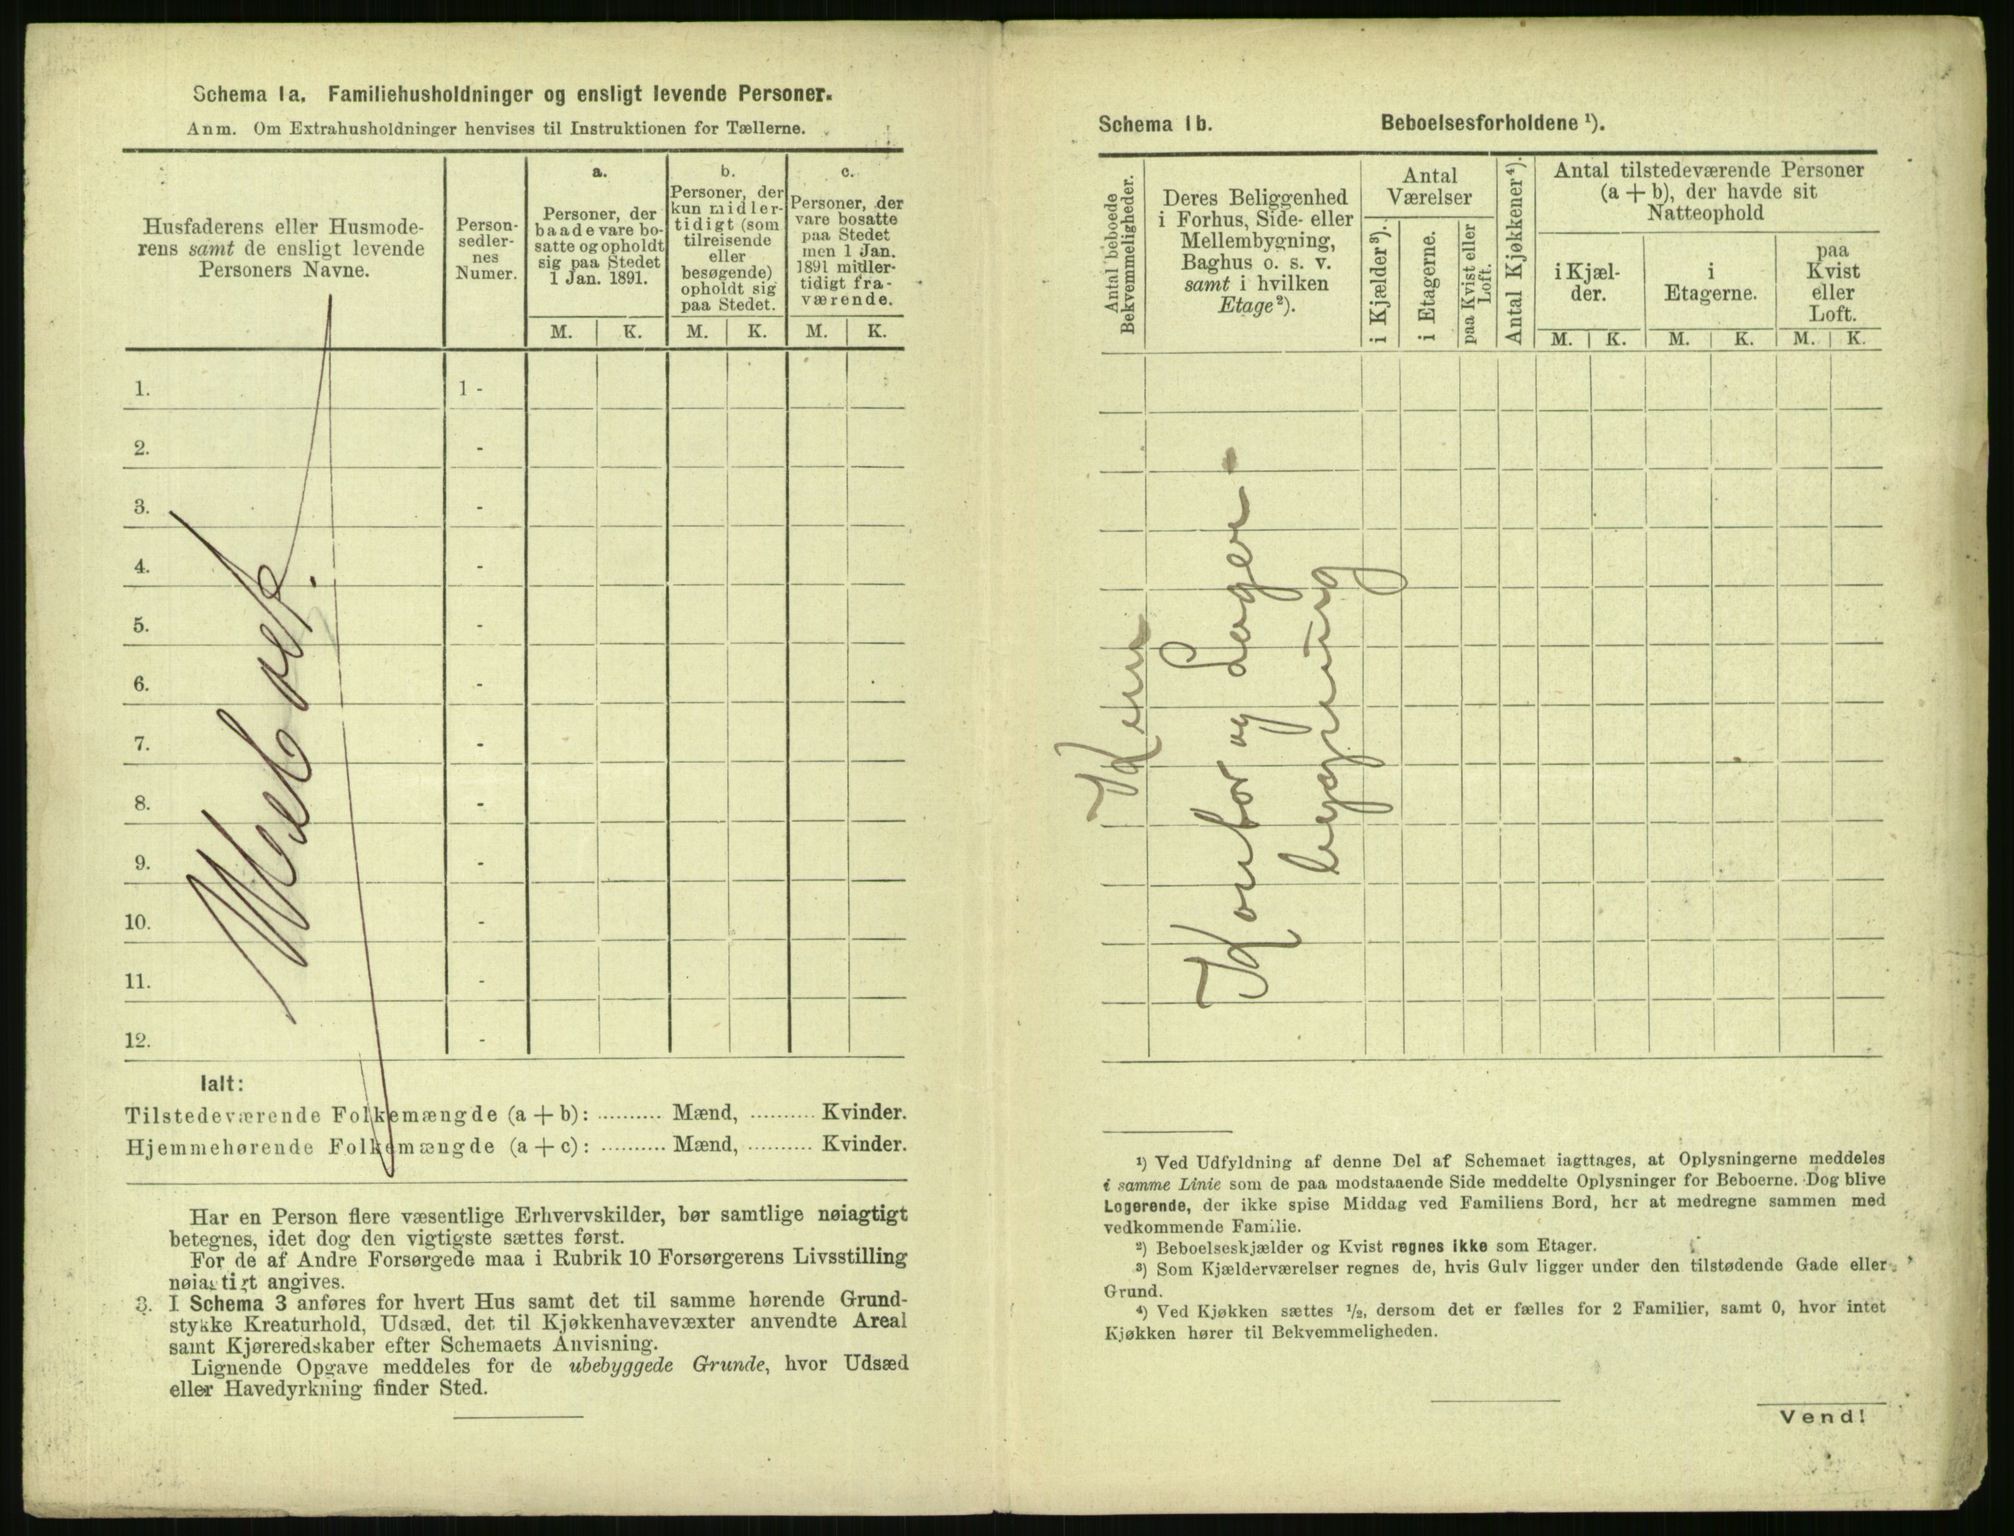 Schema 1a. Familiehusholdninger og ensligt levende Personer.
Anm. Om Extrahusholdninger henvises til Instruktionen for Tællerne.
Husfaderens eller Husmode-
rens samt de ensligt levende
Personers Navne.
Person-
sedler-
nes
Numer.
a.
Personer, der
baade vare bo-
satte og opholdt
sig paa Stedet
1 Jan. 1891.
b.
Personer, der
kun midler-
tidigt (som
tilreisende
eller
besøgende)
opholdt sig
paa Stedet.
c.
Personer, der
vare bosatte
paa Stedet
men 1 Jan.
1891 midler-
tidigt fra-
værende.
M. K. M. K. M. K.
1. 1 -
2. -
3. -
4. -
5. -
6. -
7. -
8. -
9. -
10. -
11. -
12. -
Ialt:
Tilstedeværende Folkemængde (a + b): .......... Mænd, .......... Kvinder.
Hjemmehørende Folkemængde (a + c): .......... Mænd, .......... Kvinder.
Har en Person flere væsentlige Erhvervskilder, bør samtlige nøiagtigt
betegnes, idet dog den vigtigste sættes først.
For de af Andre Forsørgede maa i Rubrik 10 Forsørgerens Livsstilling
nøiagtigt angives.
3. I Schema 3 anføres for hvert Hus samt det til samme hørende Grund-
stykke Kreaturhold, Udsæd, det til Kjøkkenhavevæxter anvendte Areal
samt Kjøreredskaber efter Schemaets Anvisning.
Lignende Opgave meddeles for de ubebyggede Grunde, hvor Udsæd
eller Havedyrkning finder Sted.
Schema 1b. Beboelsesforholdene ¹).
Antal beboede
Bekvemmeligheder.
Deres Beliggenhed
i Forhus, Side- eller
Mellembygning,
Baghus o. s. v.
samt i hvilken
Etage²).
Antal
Værelser
i Kjælder³).
i Etagerne.
paa Kvist eller
Loft.
Antal Kjøkkener⁴).
Antal tilstedeværende Personer
(a + b), der havde sit
Natteophold
i Kjæl-
der.
i
Etagerne.
paa
Kvist
eller
Loft.
M. K. M. K. M. K.
Kun
Kontor og Lager-
bygning
¹) Ved Udfyldning af denne Del af Schemaet iagttages, at Oplysningerne meddeles
i samme Linie som de paa modstaaende Side meddelte Oplysninger for Beboerne. Dog blive
Logerende, der ikke spise Middag ved Familiens Bord, her at medregne sammen med
vedkommende Familie.
²) Beboelseskjælder og Kvist regnes ikke som Etager.
³) Som Kjælderværelser regnes de, hvis Gulv ligger under den tilstødende Gade eller
Grund.
⁴) Ved Kjøkken sættes ½, dersom det er fælles for 2 Familier, samt 0, hvor intet
Kjøkken hører til Bekvemmeligheden.
Vend!